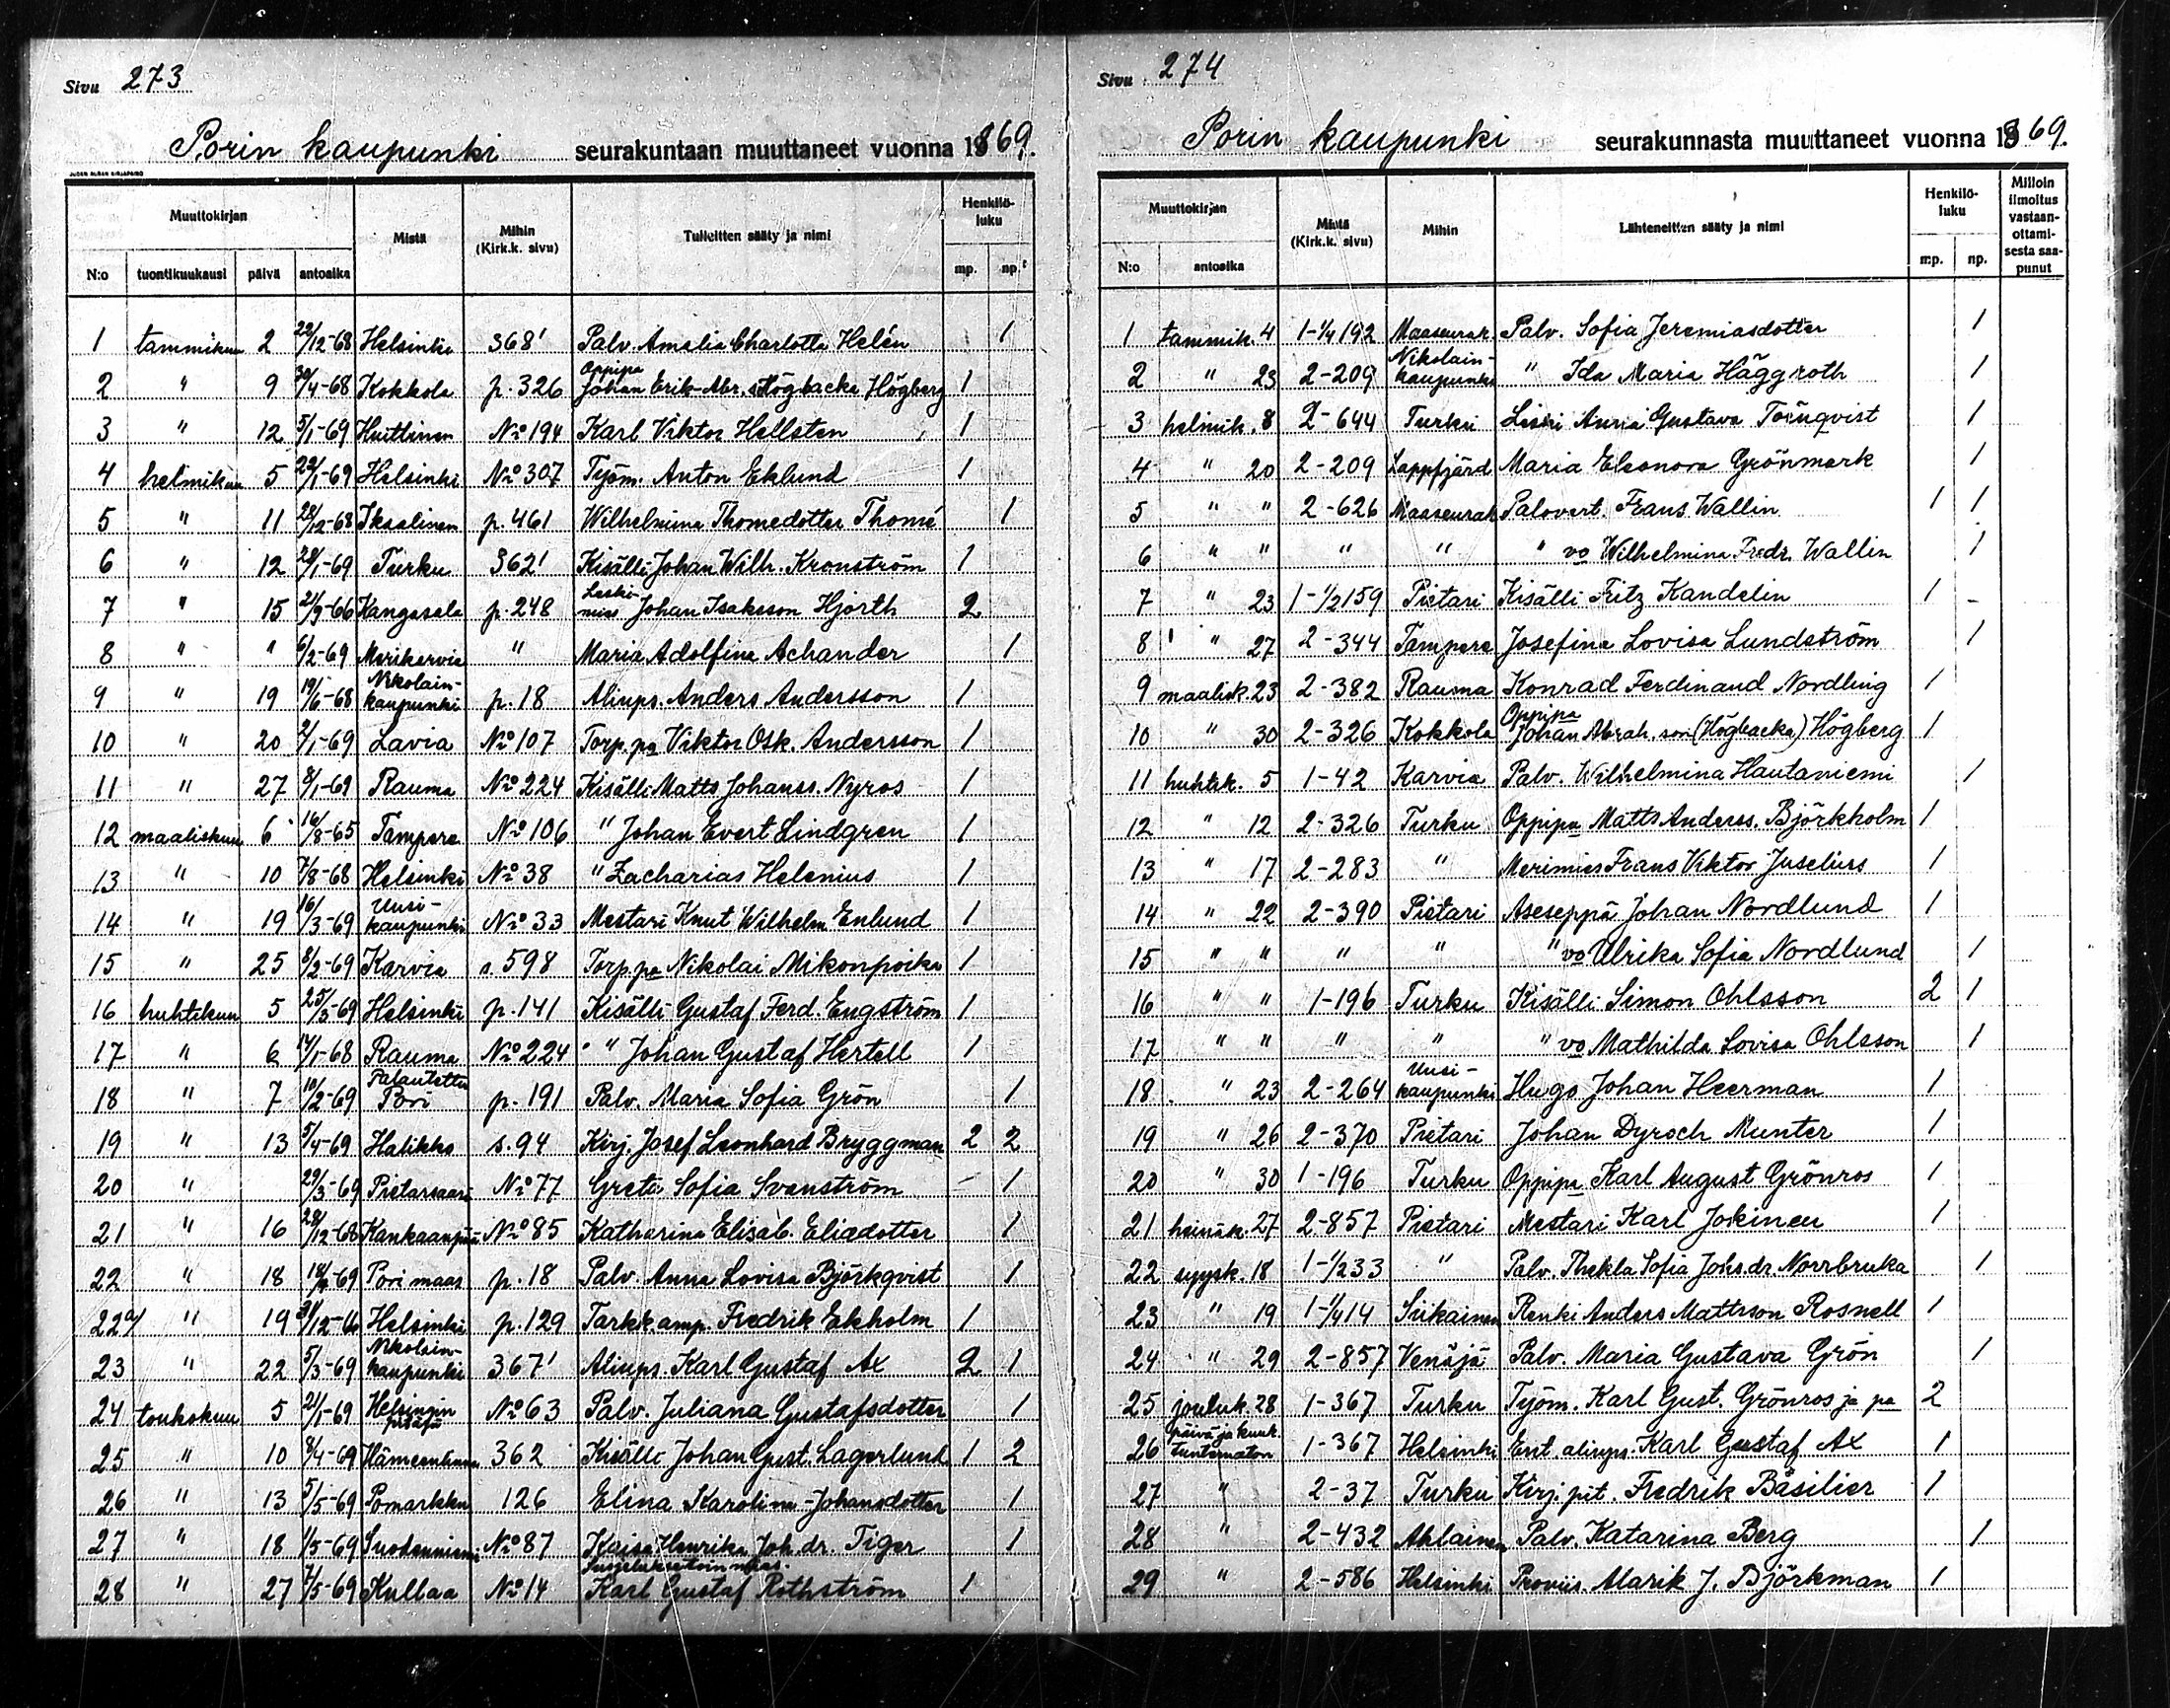 Sivu 273
Porin kaupunki seurakuntaan muuttaneet vuonna 1869.
Muuttokirjan Mistä Mihin (Kirk.k. sivu) Tulleitten sääty ja nimi Henkilö-luku
N:o tuontikuukausi päivä antoaika mp. np.
1 tammikuu 2 22/12-68 Helsinki 368' Palv. Amalia Charlotta Helén 1
2 " 9 30/4-68 Kokkola p. 326 Oppipa Johan Erik Abr.s Högbacka Högberg 1
3 " 12 5/1-69 Huittinen No 194 Karl Viktor Hellsten 1
4 helmikuu 5 22/1-69 Helsinki No 307 Työm. Anton Eklund 1
5 " 11 28/12-68 Ikaalinen p. 461 Wilhelmina Thomedotter Thomé 1
6 " 12 28/1-69 Turku 362' Kisälli Johan Wilh. Kronström 1
7 " 15 21/9-66 Kangasala p. 248 Leski-mies Johan Isaksson Hjorth 2
8 " " 6/2-69 Merikarvia " Maria Adolfina Achander 1
9 " 19 19/6-68 Nikolain-kaupunki p. 18 Aliups. Anders Andersson 1
10 " 20 2/1-69 Lavia No 107 Torp.pa Viktor Osk. Andersson 1
11 " 27 8/1-69 Rauma No 224 Kisälli Matts Johanss. Nyros 1
12 maaliskuu 6 16/8-65 Tampere No 106 " Johan Evert Lindgren 1
13 " 10 7/8-68 Helsinki No 38 " Zacharias Helenius 1
14 " 19 16/3-69 Uusi-kaupunki No 33 Mestari Knut Wilhelm Enlund 1
15 " 25 8/2-69 Karvia s. 598 Torp.pa Nikolai Mikonpoika 1
16 huhtikuu 5 25/3-69 Helsinki p. 141 Kisälli Gustaf Ferd. Engström 1
17 " 6 14/1-68 Rauma No 224 " Johan Gustaf Hertell 1
18 " 7 10/2-69 Palautettu Pori p. 191 Palv. Maria Sofia Grön 1
19 " 13 5/4-69 Halikko s. 94 Kirj. Josef Leonhard Bryggman 2 2
20 " 29/3-69 Pietarsaari No 77 Greta Sofia Svenström 1
21 " 16 28/12-68 Kankaanpää No 85 Katharina Elisab. Eliedotter 1
22 " 18 69 Pori maas p. 18 Palv. Anna Lovisa Björkqvist 1
22a/ " 19 31/12-60 Helsinki p. 129 Tarkk.amp. Fredrik Ekholm 1
23 " 22 5/3-69 Nikolain-kaupunki 367' Aliups. Karl Gustaf Ax 2 1
24 toukokuu 5 21/1-69 Helsingin pitäjä No 63 Palv. Juliana Gustafsdotter 1
25 " 10 8/4-69 Hämeenlinna 362 Kisälli Johan Gust. Lagerlund 1 2
26 " 13 5/5-69 Pomarkku 126 Elina Karolina Johansdotter 1
27 " 18 1/5-69 Suodenniemi No 87 Kaisa Henrika Joh. dr. Tiger 1
28 " 27 7/5-69 Kullaa No 14 Karl Gustaf Rothström 1
Sivu 274
Porin kaupunki seurakunnasta muuttaneet vuonna 1869.
Muuttokirjan Mistä (Kirk.k. sivu) Mihin Lähteneitten sääty ja nimi Henkilö-luku Milloin ilmoitus vastaan-ottami-sesta saa-punut
N:o antoaika mp. np.
1 tammik. 4 1-1/4 192 Maaseurak Palv. Sofia Jeremiasdotter 1
2 " 23 2-209 Nikolain-kaupunki " Ida Maria Häggroth 1
3 helmik. 8 2-644 Turku Leski Anna Gustava Törnqvist 1
4 " 20 2-209 Lappfjärd Maria Eleonora Grönmark 1
5 " " 2-626 Maaseurak Palovart. Frans Wallin 1 1
6 " " " " " vo Wilhelmina Fredr. Wallin 1
7 " 23 1-1/2 159 Pietari Kisälli Fritz Kandelin 1 -
8 " 27 2-344 Tampere Josefina Lovisa Lundström 1
9 maalisk. 23 2-382 Rauma Konrad Ferdinand Nordling 1
10 " 30 2-326 Kokkola Oppipa Johan Abrah. son (Högbacka) Högberg 1
11 huhtik. 5 1-42 Karvia Palv. Wilhelmina Hautaniemi 1
12 " 12 2-326 Turku Oppipa Matts Anderss. Björkholm 1
13 " 17 2-283 " Merimies Frans Viktor Juselius 1
14 " 22 2-390 Pietari Aseseppä Johan Nordlund 1
15 " " " " " vo Ulrika Sofia Nordlund 1
16 " " 1-196 Turku Kisälli Simon Ohlsson 2 1
17 " " " " " vo Mathilda Lovisa Ohlsson 1
18 " 23 2-264 Uusi-kaupunki Hugo Johan Heerman 1
19 " 26 2-370 Pietari Johan Dyroch Munter 1
20 " 30 1-196 Turku Oppipa Karl August Grönros 1
21 heinäk. 27 2-857 Pietari Mestari Karl Jokinen 1
22 syysk. 18 1-1/2 33 " Palv. Thekla Sofia Johs.dr. Norrbruka 1
23 " 19 1-1/4 14 Siikainen Renki Anders Mattsson Rosnell 1
24 " 29 2-857 Venäjä Palv. Maria Gustava Grön 1
25 jouluk. 28 1-367 Turku Työm. Karl Gust. Grönros ja pa 2
26 päivä ja kuuk. tuntematon 1-367 Helsinki Ent. aliups. Karl Gustaf Ax 1
27 " 2-37 Turku Kirj. pit. Fredrik Basilier 1
28 " 2-432 Ahlainen Palv. Katarina Berg 1
29 " 2-586 Helsinki Proviis. Alarik J. Björkman 1